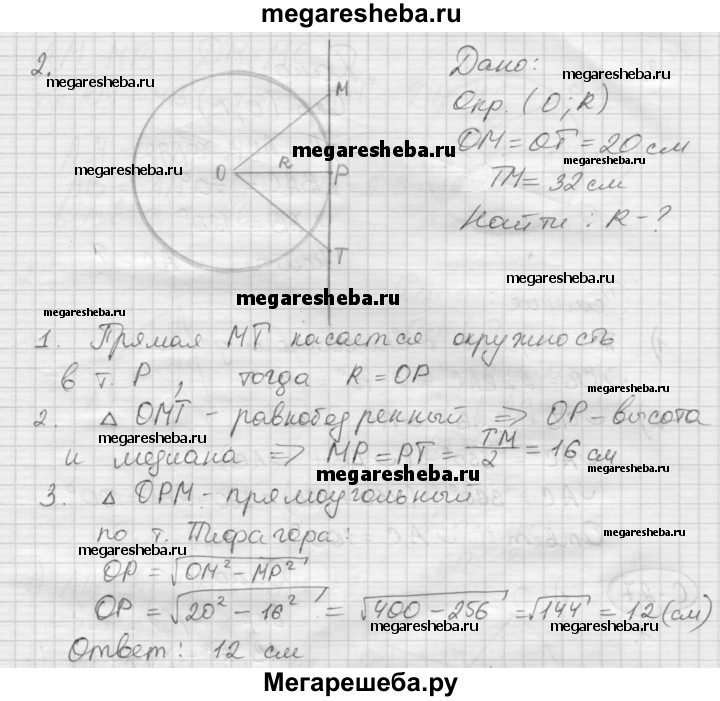 megaresheba.ru
2.
megaresheba.ru
M
O
R
P
T
megaresheba.ru
megaresheba.ru
Дано:
megaresheba.ru
Окр. (O; R)
OM = OT = 20 см
megaresheba.ru
TM = 32 см
Найти: R - ?
megaresheba.ru
megaresheba.ru
megaresheba.ru
1. Прямая MT касается окружность
в т. P, тогда R = OP
megaresheba.ru
2. △ OMT - равнобедренный ⇒ OP - высота
megaresheba.ru
и медиана ⇒ MP = PT = TM/2 = 16 см
megaresheba.ru
megaresheba.ru
3. △ OPM - прямоугольный
по т. Пифагора:
megaresheba.ru
megaresheba.ru
OP = √OM² - MP²
OP = √20² - 16² = √400 - 256 = √144 = 12 (см)
megaresheba.ru
megaresheba.ru
Ответ: 12 см
Мегарешеба.ру